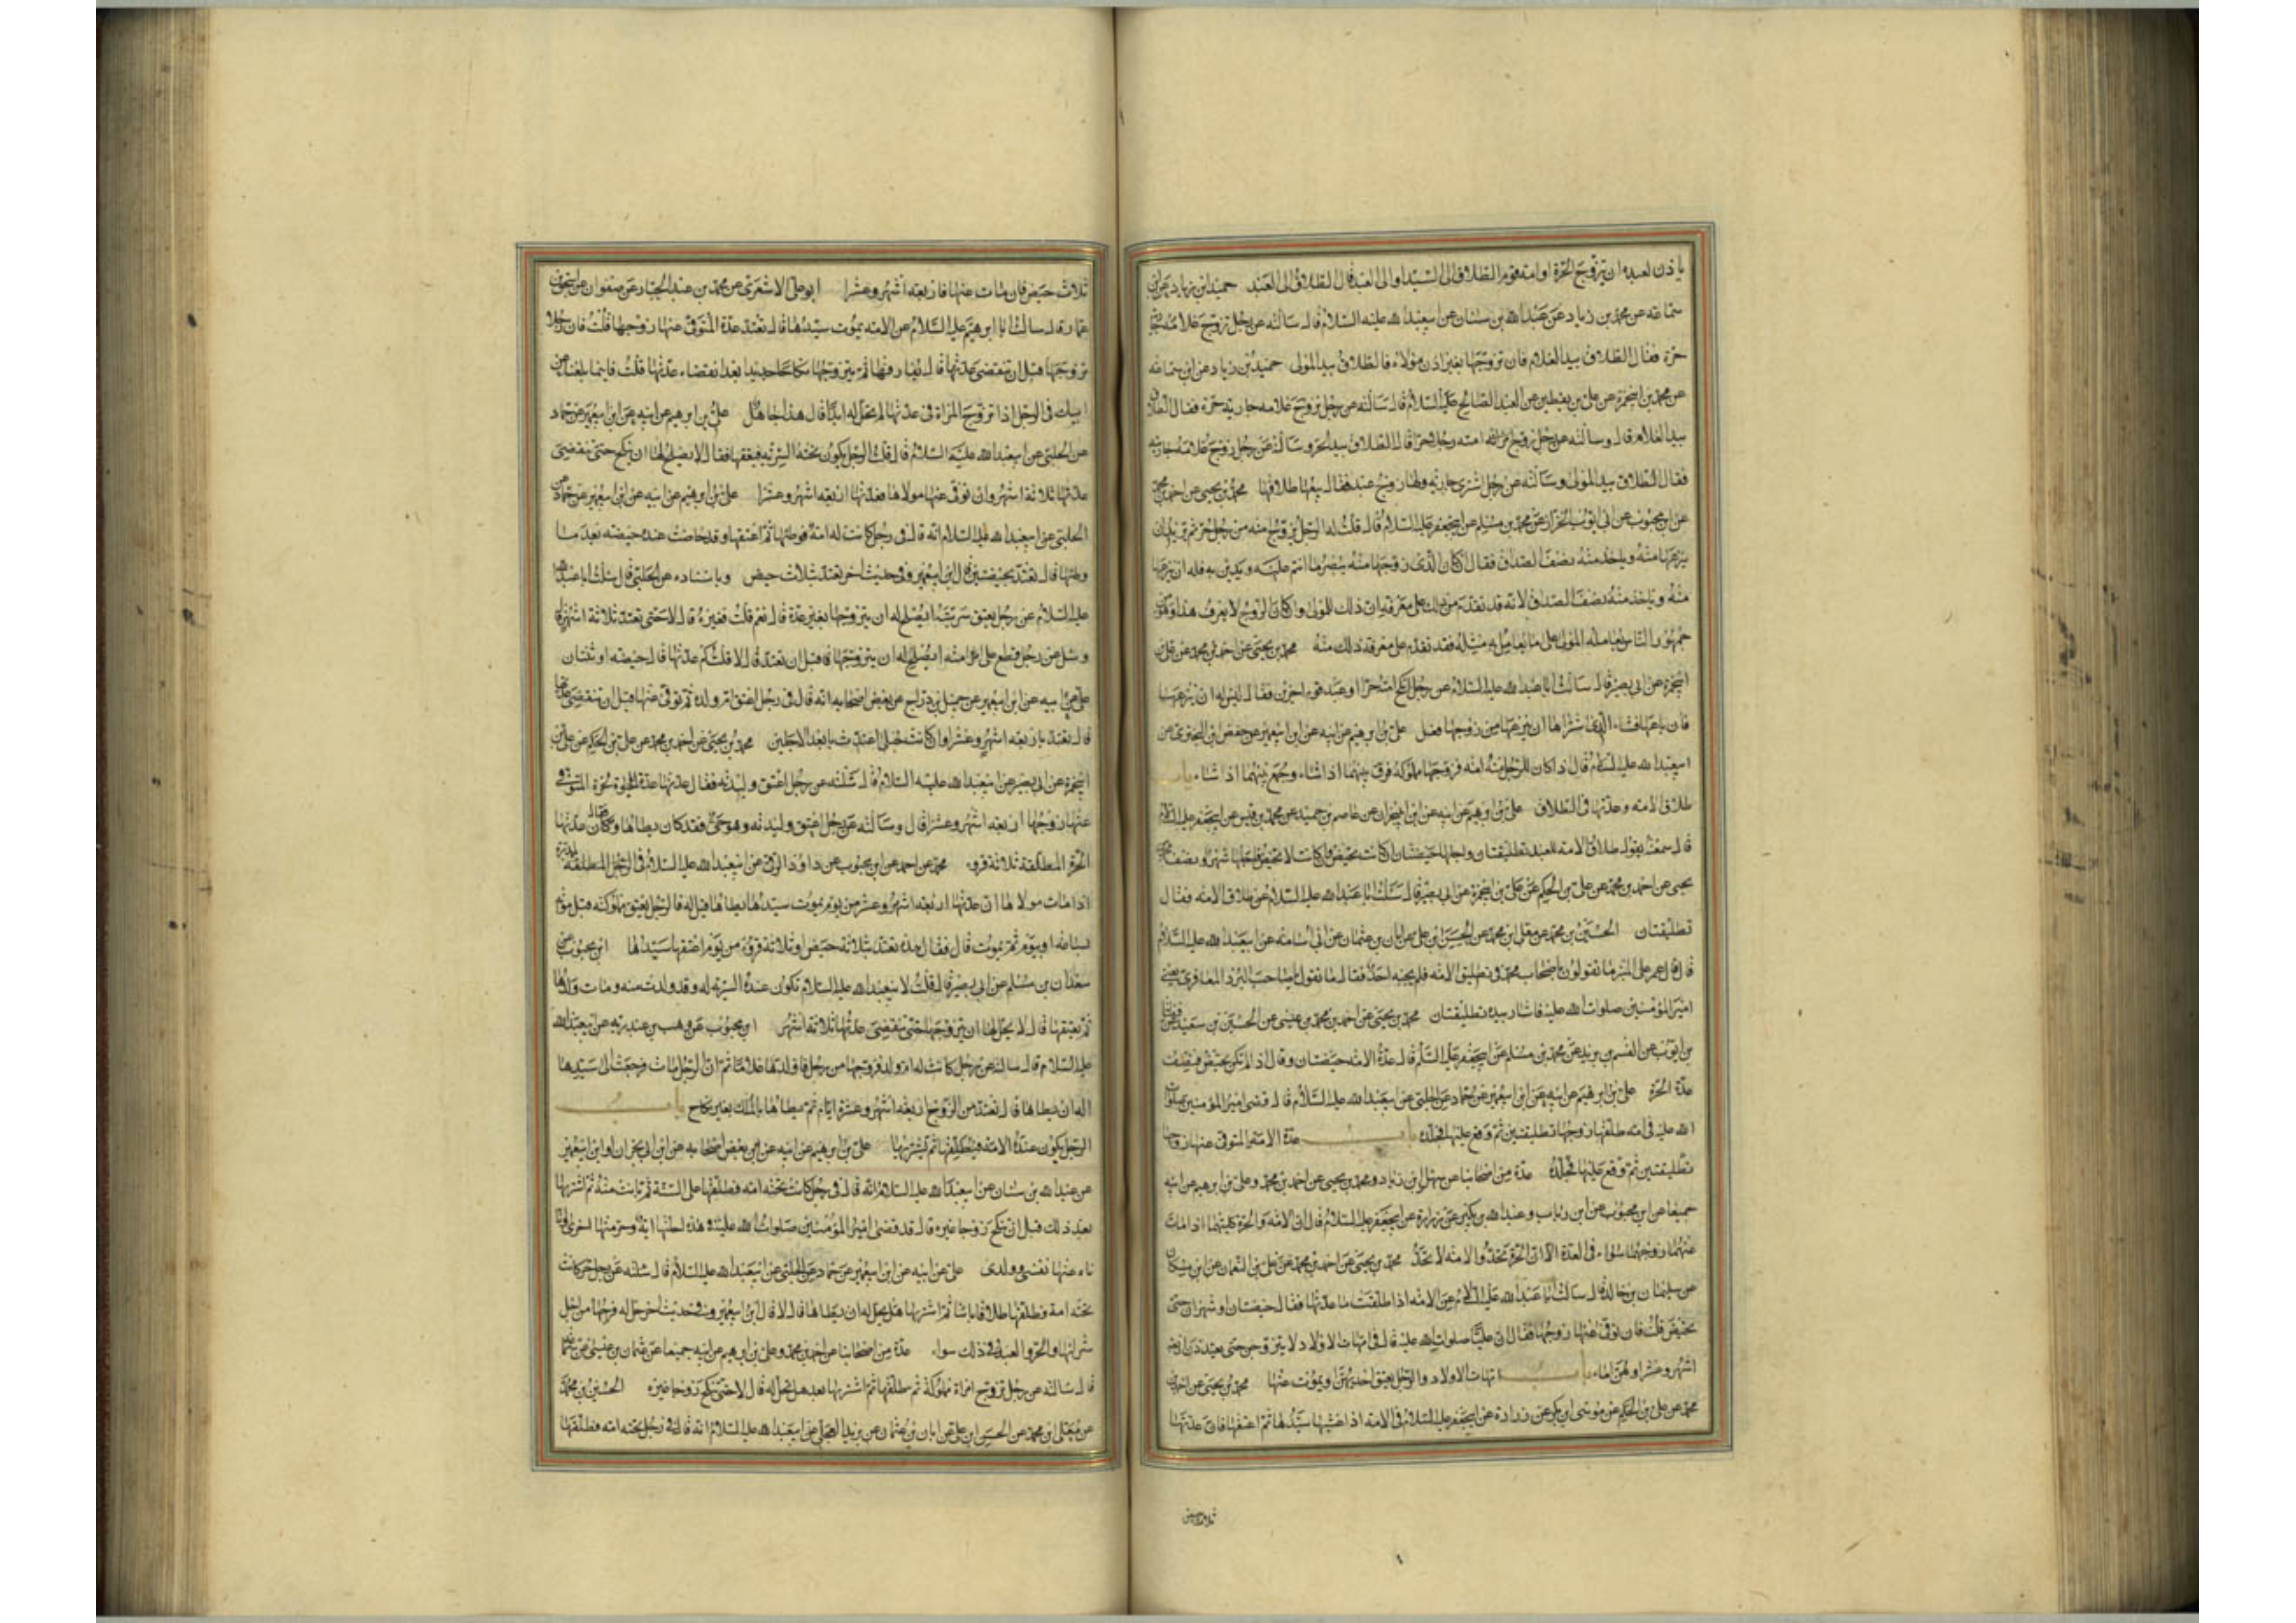 ياذن لعبده ان يتزوج الحرة او امة قوم الطلاق الى السيد او الى العبد قال الطلاق الى العبد حميد ابن زياد عن ابن
سماعة عن محمد بن زياد عن عبد الله بن سنان عن ابيعبد الله عليه السلام قال سالته عن رجل تزوج غلامه جارية
حرة فقال الطلاق بيد الغلام فان تزوجها بغير اذن مولاه فالطلاق بيد المولى حميد بن زياد عن ابن سماعة
عن محمد بن ابيحمزة عن علي بن يقطين عن العبد الصالح عليه السلام قال سالته عن رجل تزوج غلامه جارية حرة فقال الطلاق
بيد الغلام قال وسالته عن رجل زوج امته رجلا حرا قال الطلاق بيد الحر وسالته عن رجل زوج غلامه جاريته
فقال الطلاق بيد المولى وسالته عن رجل اشترى جارية ولها زوج عبد فقال بيعها طلاقها محمد بن يحيى عن احمد بن محمد
عن ابن محبوب عن ابي ايوب الخزاز عن محمد بن مسلم عن ابيجعفر عليه السلام قال قلت له الرجل يزوج امته من رجل حر ثم يريد ان
ينزعها منه وياخذ منه نصف الصداق فقال ان كان الذي زوجها منه يبصر ما انتم عليه ويدين به فله ان ينزعها
منه وياخذ منه نصف الصداق لانه قد تقدم من ذلك على معرفة ان ذلك للمولى وان كان الزوج لا يعرف هذا وهو من
جمهور الناس يعامله المولى على ما يعامل به مثله فقد تقدم على معرفة ذلك منه محمد بن يحيى عن احمد بن محمد عن علي بن
ابيحمزة عن ابي بصير قال سالت ابا عبد الله عليه السلام عن رجل انكح امته حرا او عبد قوم اخرين فقال ليس له ان ينزعها
فان باعها فشاء الذي اشتراها ان ينزعها من زوجها فعل علي بن ابرهيم عن ابيه عن ابن ابيعمير عن حفص بن البختري عن
ابيعبد الله عليه السلام قال اذا كان للرجل امة فزوجها مملوكه فرق بينهما اذا شاء وجمع بينهما اذا شاء باب
طلاق الامة وعدتها في الطلاق علي بن ابرهيم عن ابيه عن ابن ابينجران عن عاصم بن حميد عن محمد بن قيس عن ابيجعفر عليه السلام
قال سمعته يقول طلاق الامة للعبد تطليقتان واجلها حيضتان ان كانت تحيض وان كانت لا تحيض فاجلها شهر ونصف محمد بن
يحيى عن احمد بن محمد عن علي بن الحكم عن علي بن ابيحمزة عن ابي بصير قال سئلت ابا عبد الله عليه السلام عن طلاق الامة فقال
تطليقتان الحسين بن محمد عن معلى بن محمد عن الحسن ابن علي عن ابان بن عثمان عن ابي اسامة عن ابيعبد الله عليه السلام
قال قال عمر على المنبر ما تقولون يا اصحاب محمد في تطليق الامة فلم يجبه احد فقال ما تقول يا صاحب البرد المعافري يعني
امير المؤمنين صلوات الله عليه فاشار بيده تطليقتان محمد بن يحيى عن احمد بن محمد بن عيسى عن الحسين بن سعيد عن فضالة
بن ايوب عن القسم بن بريد عن محمد بن مسلم عن ابيجعفر عليه السلم قال عدة الامة حيضتان وقال اذا لم تكن تحيض فنصف
عدة الحرة علي بن ابرهيم عن ابيه عن ابن ابيعمير عن حماد عن الحلبي عن ابيعبد الله عليه السلام قال قضى امير المؤمنين صلوات
الله عليه في امة طلقها زوجها تطليقتين ثم وقع عليها فجلده باب عدة الامة المتوفى عنها زوجها
تطليقتين ثم وقع عليها فجلده عدة من اصحابنا عن سهل ابن زياد ومحمد بن يحيى عن احمد بن محمد وعلي بن ابرهيم عن ابيه
جميعا عن ابن محبوب عن ابن رئاب وعبد الله بن بكير عن زرارة عن ابيجعفر عليه السلام قال ان الامة والحرة كلتيهما اذا مات
عنهما زوجهما سواء في العدة الا ان الحرة تحد والامة لا تحد محمد بن يحيى عن احمد بن محمد عن علي بن النعمان عن ابن مسكان
عن سليمان بن خالد قال سالت ابا عبد الله عليه السلام عن الامة اذا طلقت ما عدتها فقال حيضتان او شهران حتى
تحيض قلت فان توفي عنها زوجها فقال ان عليا صلوات الله عليه قال في امهات الاولاد لا يتزوجن حتى يعتددن اربعة
اشهر وعشرا وهن اماء باب امهات الاولاد والرجل يعتق احديهن او يموت عنها محمد بن يحيى عن احمد بن
محمد عن علي بن الحكم عن موسى ابن بكر عن زرارة عن ابيجعفر عليه السلام في الامة اذا غشيها سيدها ثم اعتقها فان عدتها
ثلاث حيض
ثلاث حيض فان مات عنها فاربعة اشهر وعشرا ابو علي الاشعري عن محمد بن عبد الجبار عن صفوان عن اسحق بن
عمار قال سالت ابا ابرهيم عليه السلام عن الامة يموت سيدها قال تعتد عدة المتوفى عنها زوجها قلت فان رجلا
تزوجها قبل ان تنقضي عدتها قال يفارقها ثم يتزوجها نكاحا جديدا بعد انقضاء عدتها قلت فاينما بلغنا عن
ابيك في الرجل اذا تزوج المراة في عدتها لم تحل له ابدا قال هذا جاهل علي بن ابرهيم عن ابيه عن ابن ابيعمير عن حماد
عن الحلبي عن ابيعبد الله عليه السلام قال قلت الرجل يكون تحته السرية فيعتقها فقال لا يصلح لها ان تنكح حتى تنقضي
عدتها ثلاثة اشهر وان توفي عنها مولاها فعدتها اربعة اشهر وعشرا علي بن ابرهيم عن ابيه عن ابن ابيعمير عن حماد عن
الحلبي عن ابيعبد الله عليه السلام انه قال في رجل كانت له امة فوطئها ثم اعتقها وقد حاضت عنده حيضة بعد ما
وطئها قال تعتد بحيضتين قال ابن ابيعمير وفي حديث اخر تعتد بثلاث حيض وباسناده عن الحلبي قال سئلت ابا عبد الله
عليه السلام عن رجل يعتق سريته ايصلح له ان يتزوجها بغير عدة قال نعم قلت فغيره قال لا حتى تعتد ثلاثة اشهر قال
وسئل عن رجل وقع على امته ايصلح له ان يتزوجها قبل ان تعتد قال لا قلت كم عدتها قال حيضة او ثنتان
علي عن ابيه عن ابن ابيعمير عن جميل بن دراج عن بعض اصحابه انه قال في رجل اعتق ام ولده ثم توفي عنها قبل ان تنقضي عدتها
قال تعتد باربعة اشهر وعشرا وان كانت حبلى اعتدت بابعد الاجلين محمد بن يحيى عن احمد بن محمد عن علي بن الحكم عن علي بن
ابيحمزة عن ابي بصير عن ابيعبد الله عليه السلام قال سئلته عن رجل اعتق وليدته عند الموت فقال عدتها عدة الحرة المتوفى
عنها زوجها اربعة اشهر وعشرا قال وسالته عن رجل اعتق وليدته وهو حي وقد كان يطاها فقال عدتها
الحرة المطلقة ثلاثة قروء محمد عن احمد عن ابن محبوب عن داود الرقي عن ابيعبد الله عليه السلام في المدبرة
اذا مات مولاها ان عدتها اربعة اشهر وعشر من يوم يموت سيدها اذا كان سيدها يطاها قيل له فالرجل يعتق مملوكته قبل موته
بساعة او بيوم ثم يموت قال فقال هذه تعتد بثلاثة حيض او ثلاثة قروء من يوم اعتقها سيدها ابن محبوب عن
سعدان بن مسلم عن ابي بصير قال قلت لابيعبد الله عليه السلام تكون عنده السرية له وقد ولدت منه ومات ولدها
ثم يعتقها قال لا يحل لها ان تتزوج حتى تنقضي عدتها ثلاثة اشهر ابن محبوب عن وهب بن عبد ربه عن ابيعبد الله
عليه السلام قال سالته عن رجل كانت له ام ولد فزوجها من رجل فاولدها غلاما ثم ان الرجل مات فرجعت الى سيدها
اله ان يطاها قال تعتد من الزوج اربعة اشهر وعشرة ايام ثم يطاها بالملك بغير نكاح باب
الرجل يكون عنده الامة فيطلقها ثم يشتريها علي بن ابرهيم عن ابيه عن بعض اصحابه عن ابن ابي نجران او ابن ابيعمير
عن عبد الله بن سنان عن ابيعبد الله عليه السلام انه قال في رجل كانت تحته امة فطلقها على السنة ثم بانت منه ثم اشتراها
بعد ذلك قبل ان تنكح زوجا غيره قال قد قضى امير المؤمنين صلوات الله عليه في هذه احلتها اية وحرمتها اخرى وانا
ناه عنها نفسي وولدي علي عن ابيه عن ابن ابيعمير عن حماد عن الحلبي عن ابيعبد الله عليه السلام قال سئلته عن رجل حر كانت
تحته امة وطلقها طلاقا بائنا ثم اشتريها هل يحل له ان يطاها قال لا قال ابن ابيعمير وفي حديث اخر حل له فرجها من اجل
شرائها والحر والعبد في ذلك سواء عدة من اصحابنا عن احمد بن محمد وعلي بن ابرهيم عن ابيه جميعا عن عثمان بن عيسى عن سماعة
قال سالته عن رجل تزوج امراة مملوكة ثم طلقها ثم اشتريها بعد هل تحل له قال لا حتى تنكح زوجا غيره الحسين بن محمد
عن معلى ابن محمد عن الحسن ابن علي عن ابان بن عثمان عن بريد العجلي عن ابيعبد الله عليه السلام انه قال في رجل تحته امة فطلقها